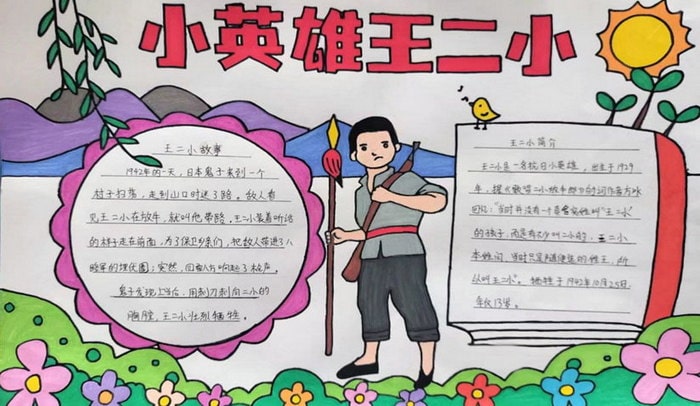 小英雄王二小
王二小故事
1942年的一天，日本鬼子来到一个
村子扫荡，走到山口时迷了路。敌人看
见王二小在放牛，就叫他带路，王二小装着听话
的样子走在前面，为了保卫乡亲们，把敌人带进了八
路军的埋伏圈；突然，四面八方响起了枪声，
鬼子发现上当后，用刺刀刺向二小的
胸膛，王二小壮烈牺牲。
王二小简介
王二小是一名抗日小英雄，出生于1929
年，据《歌唱二小放牛郎》的词作者方冰
回忆："当时并没有一个真实的叫"王二小"
的孩子，而是有不少叫二小的，王二小
本姓阎，当时只是随便起的姓王，所
以叫王二小"。牺牲于1942年10月25日
年仅13岁。